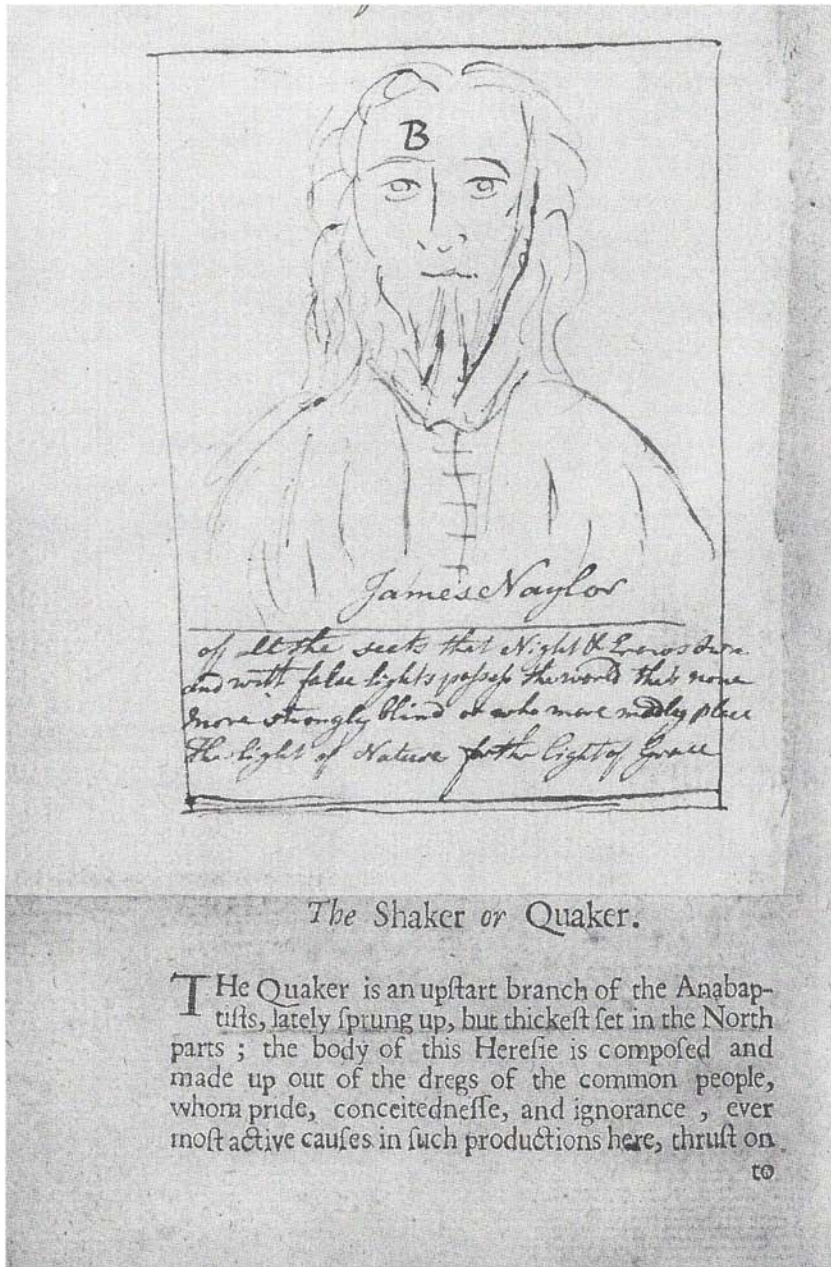 B
James Naylor
of all the sects that Night & Errors own
and with false lights possess the world ther's none
more strongly blind or who more madly place
the light of Nature for the light of Grace
The Shaker or Quaker.
THe Quaker is an upſtart branch of the Anabap-
tiſts, lately ſprung up, but thickeſt ſet in the North
parts ; the body of this Hereſie is compoſed and
made up out of the dregs of the common people,
whom pride, conceitedneſſe, and ignorance , ever
moſt active cauſes in ſuch productions here, thruſt on
to